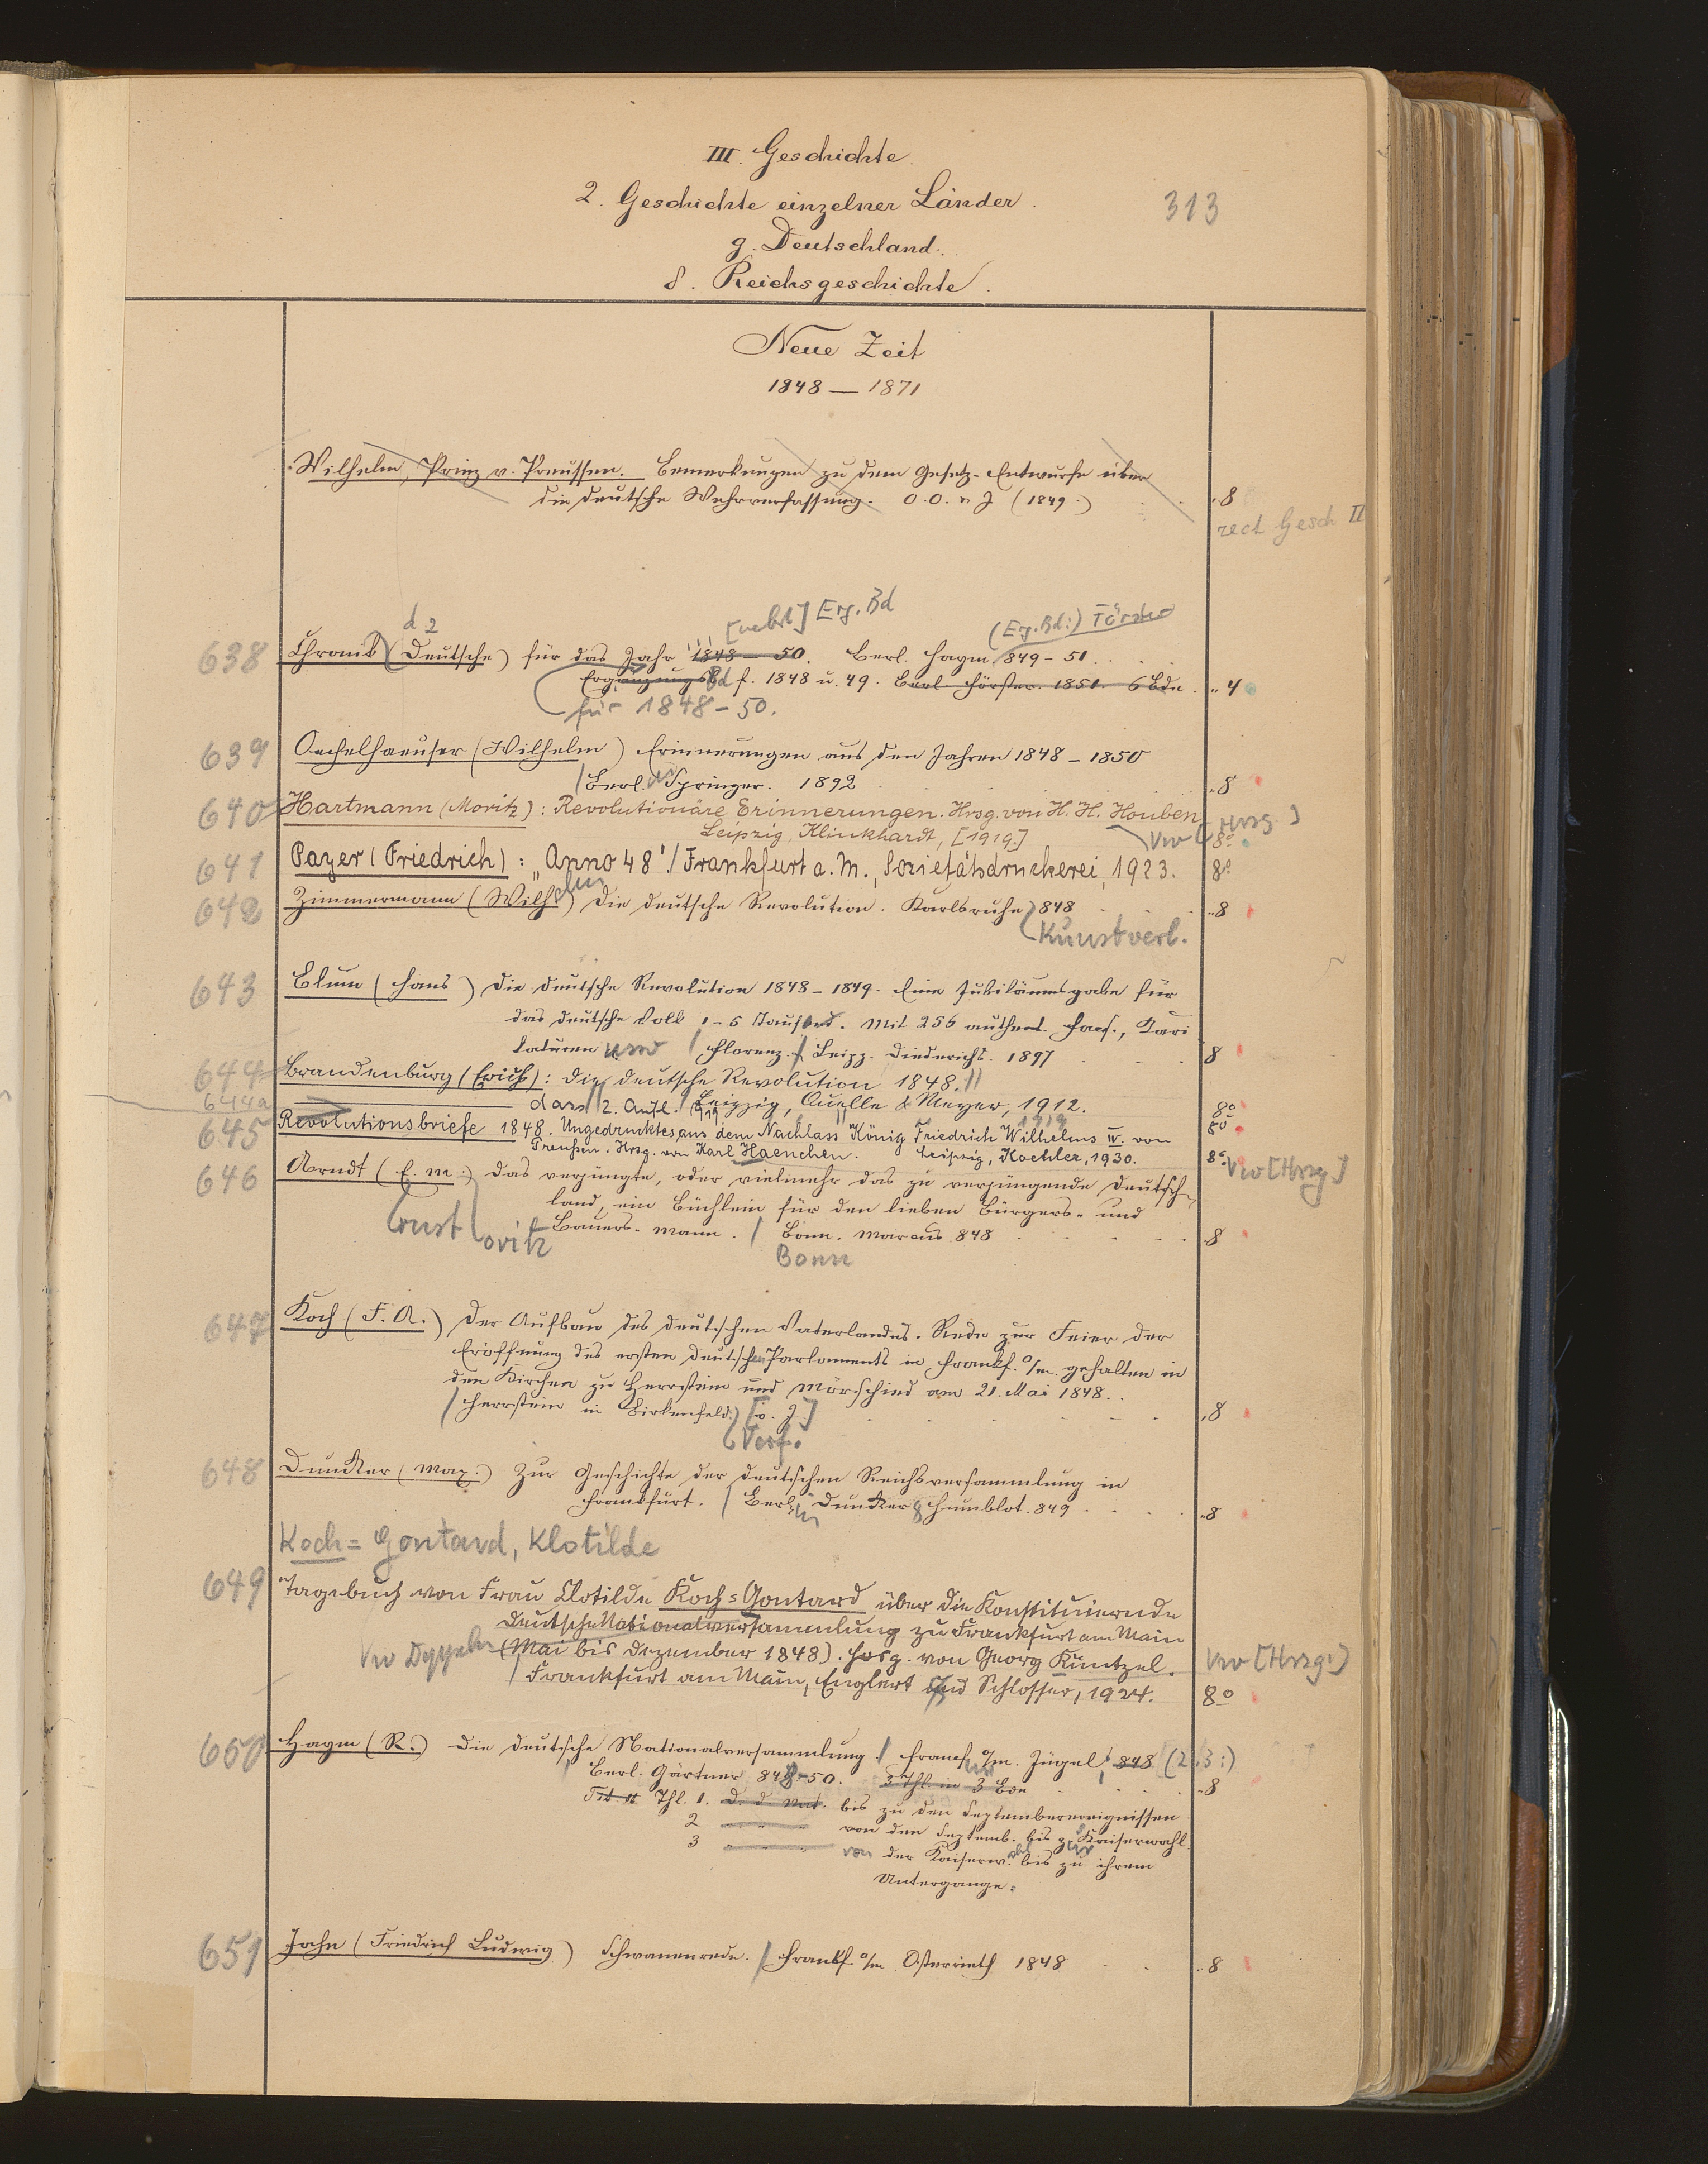 III. Geschichte.
2. Geschichte einzelner Länder.
313
g. Deutschland.
δ. Reichsgeschichte.
Neue Zeit
1848 — 1871
Wilhelm, Prinz v. Preussen. Bemerkungen zu dem Gesetz-Entwurfe über
die deutsche Wehrverfassung. O. O. u J (1849.) 8
rect Gesch II
d. 2 [nebst] Erg. Bd (Erg. Bd:) Förster
638 Chronik (Deutsche) für das Jahr 1848 – 50. Berl. Hayn 849 – 51.
Ergänzungsb Bd f. 1848 u. 49. Berl Förster. 1851. 6 Bde. 4
für 1848 – 50.
639 Oechelhaeuser (Wilhelm) Erinnerungen aus den Jahren 1848 – 1850
Berl. Springer. 1892 8
640 Hartmann (Moritz): Revolutionäre Erinnerungen. Hrsg. von H. H. Houben
Leipzig, Klinkhardt, [1919.] Vw [Hrsg.] 8°
641 Payer (Friedrich): „Anno 48"/Frankfurt a. M., Sozietätsdruckerei, 1923. 8°
642 Zimmermann (Wilhelm) Die deutsche Revolution. Karlsruhe 848 8
Kunstverl.
643 Blum (Hans) Die deutsche Revolution 1848 – 1849. Eine Jubiläumsgabe für
das deutsche Volk 1 – 5 Tausend. Mit 256 authent. Facs., Kari
katuren usw / Florenz. / Leipz. Diederichs. 1897 8
644 Brandenburg (Erich): Die deutsche Revolution 1848.
644a dass 2. Aufl. Leipzig, Quelle & Meyer, 1912. 8°
1919 1919 8°
645 Revolutionsbriefe 1848. Ungedrucktes aus dem Nachlass König Friedrich Wilhelms IV. von
Preußen. Hrsg. von Karl Haenchen. Leipzig, Koehler, 1930. 8° Vw [Hrsg]
646 Arndt (E. M.) Das verjüngte, oder vielmehr das zu verjüngende Deutsch-
land, ein Büchlein für den lieben Bürgers- und
Ernst oritz Bauers-mann. / Bonn. Marcus 848 8
Bonn
647 Koch (F. A.) Der Aufbau des deutschen Vaterlandes. Rede zur Feier der
Eröffnung des ersten deutschen Parlaments in Frankf. a/m. gehalten in
den Kirchen zu Herrstein und Mörschied am 21. Mai 1848.
/ Herrstein in Birkenfeld.) [o. J.] 8
Verf.
648 Duncker (Max.) Zur Geschichte der deutschen Reichsversammlung in
Frankfurt. / Berlin Duncker & Humblot. 849 8
Koch = Gontard, Klotilde
649 Tagebuch von Frau Clotilde Koch=Gontard über die Konstituierende
Deutsche Nationalversammlung zu Frankfurt am Main
(Mai bis Dezember 1848). Hrsg. von Georg Küntzel. Vw [Hrsg.]
Frankfurt am Main, Englert und Schlosser, 1924. 8°
650 Haym (R.) Die deutsche Nationalversammlung / Francf. a/m. Jügel, 848 (2.3:)
Berl. Gärtner, 848–50. 3 Thl. in 3 Bde 8
Thl. 1. D. d. Nat. bis zu den Septemberereignissen
2 " " " von den Septemb. bis z. Kaiserwahl.
3 " " " von der Kaiserwahl bis zu ihrem
Untergange.
651 Jahn (Friedrich Ludwig) Schwanenrede. / Frankf. a/m Osterrieth 1848 8